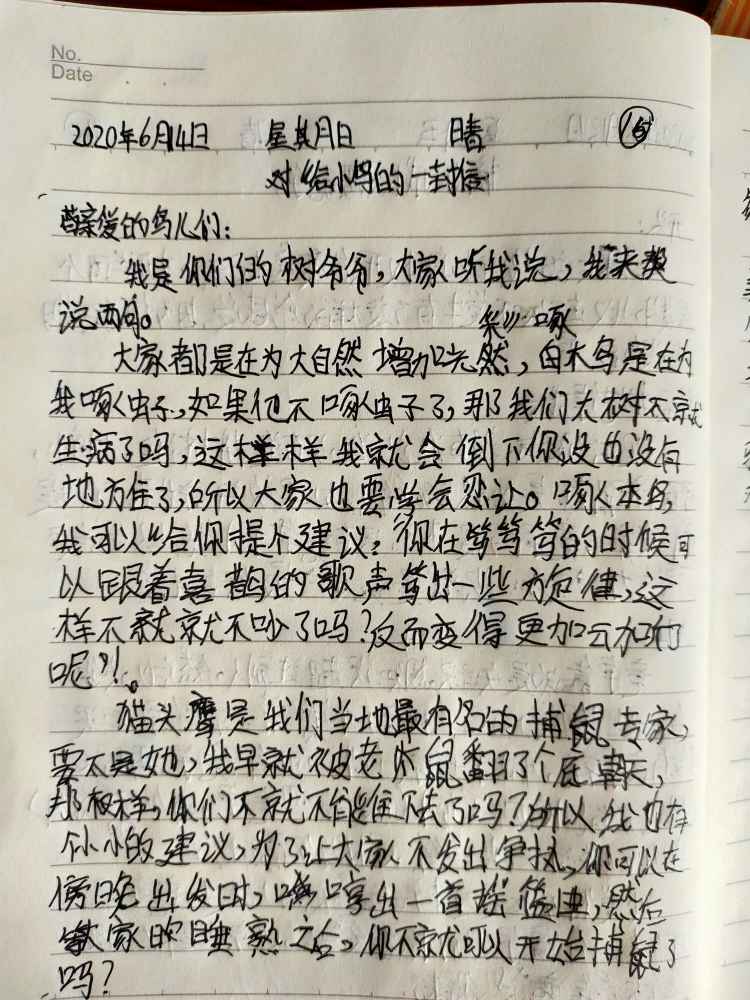 No.
Date
2020年6月14日 星其月日 晴 15
对给小鸟的一封信
尊亲爱的鸟儿们：
我是你们的树爷爷，大家听我说，我来
说两句。
啄
大家都是在为大自然增加光然，白木鸟是在为
我啄虫子，如果他不啄虫子了，那我们大树不就
生病了吗，这样样我就会倒下你没也没有
地方住了，所以大家也要学会忍让。啄木鸟，
我可以给你提个建议：你在笃笃笃的时候可
以跟着喜鹊的歌声笃出一些旋律，这
样不就就不吵了吗？反而变得更加云加听
呢"！。
猫头鹰是我们当地最有名的捕鼠专家，
要不是她，我早就被老鼠翻了个底朝天，
那样，你们不就不能住下去了吗？所以我也有
个小小的建议，为了让大家不发出争执，你可以在
傍晚出发时，哼出一首摇篮曲，然后
大家的睡熟之后，你不就可以开始捕鼠了
吗？